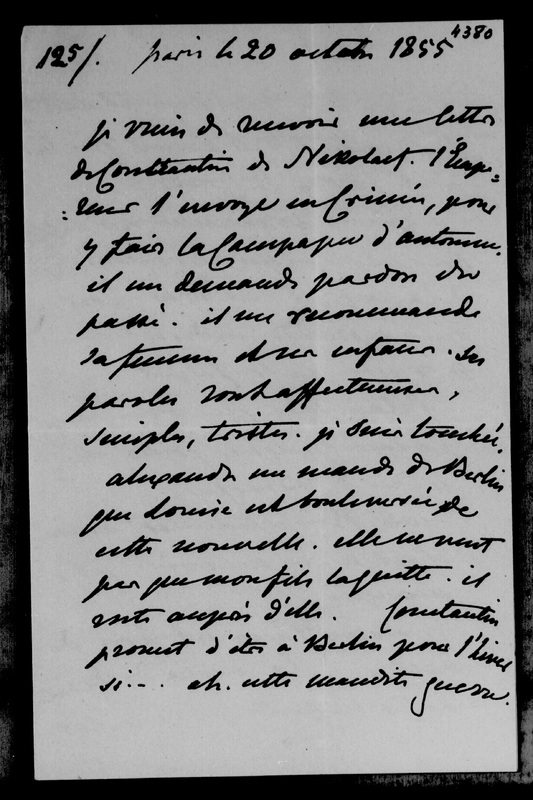 4380
125/. paris le 20 octobre 1855
je viens de recevoir une lettre
de Constantin de Nikolaef. l'Empe=
=reur l'envoye en Crimée, pour
y faire la Campagne d'automne.
il me demande pardon du
passé. il me recommande
sa femme et ses enfans. ses
paroles sont affectueuses,
simples, tristes. je suis touchée.
alexandre me mande de Berlin
que Louise est bouleversée de
cette nouvelle. elle ne veut
pas que mon fils la quitte. il
reste auprès d'elle. Constantin
promet d'être à Berlin pour l'hiver
si... ah. cette maudite guerre.